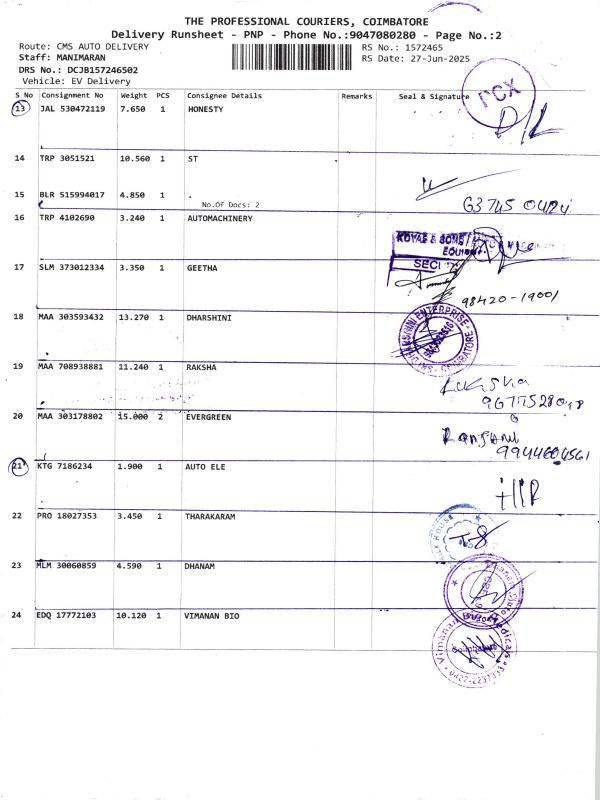 THE PROFESSIONAL COURIERS, COIMBATORE
Delivery Runsheet - PNP - Phone No.:9047080280 - Page No.:2
Route: CMS AUTO DELIVERY
RS No.: 1572465
Staff: MANIMARAN
RS Date: 27-Jun-2025
DRS No.: DCJB157246502
Vehicle: EV Delivery
S No Consignment No Weight PCS Consignee Details Remarks Seal & Signature
PCX
13 JAL 530472119 7.650 1 HONESTY
D/L
14 TRP 3051521 10.560 1 ST
15 BLR 515994017 4.850 1 .
No.Of Docs: 2
63745 04124
16 TRP 4102690 3.240 1 AUTOMACHINERY
KOVAE & SONS
17 SLM 373012334 3.350 1 GEETHA
98420-19001
18 MAA 303593432 13.270 1 DHARSHINI
ENTERPRISE
COIMBATORE
19 MAA 708938881 11.240 1 RAKSHA
Raksha
20 MAA 303178802 15.000 2 EVERGREEN
Ranjani
9944604561
21 KTG 7186234 1.900 1 AUTO ELE
22 PRO 18027353 3.450 1 THARAKARAM
23 MLM 30060859 4.590 1 DHANAM
24 EDQ 17772103 10.120 1 VIMANAN BIO
Vimanan
Medicals
0422-2237333